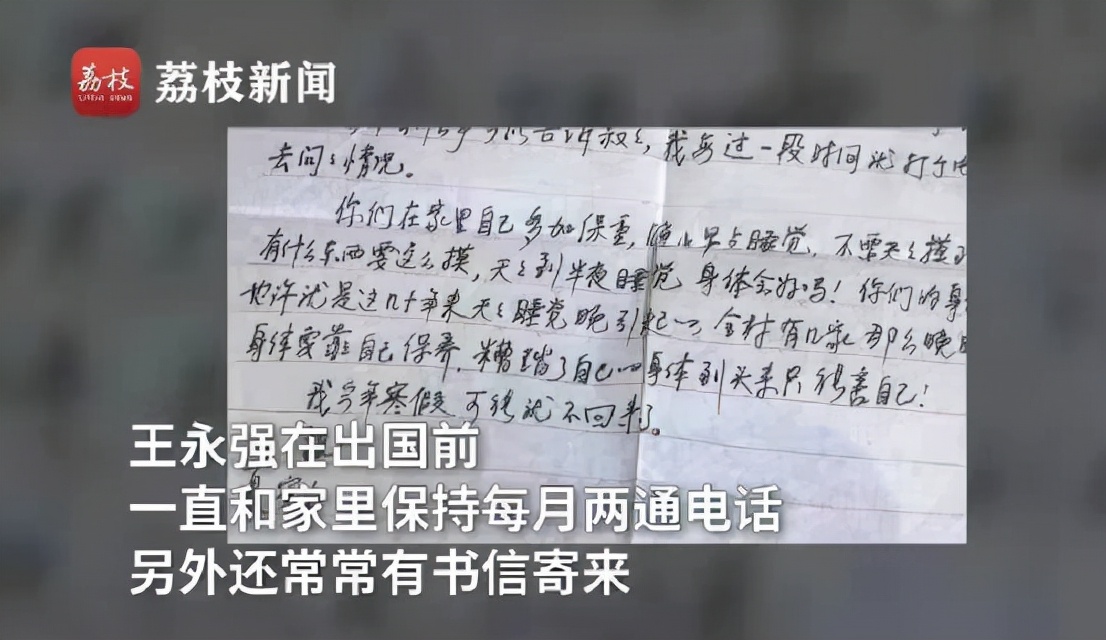 荔枝
LITCHI NEWS
荔枝新闻
叔々,我每过一段时间就打个电
去问々情况。
你们在家里自己多加保重,晚上早点睡觉,不要天々摸到
有什么东西要这么摸,天々到半夜睡觉 身体会好吗!你们的身
也许就是这几十年来天々睡觉晚引起 全村有几家那么晚
身体要靠自己保养,糟蹋了自己 身体到头来只能害自己!
我今年寒假可能就不回来了。
王永强在出国前
一直和家里保持每月两通电话
另外还常常有书信寄来